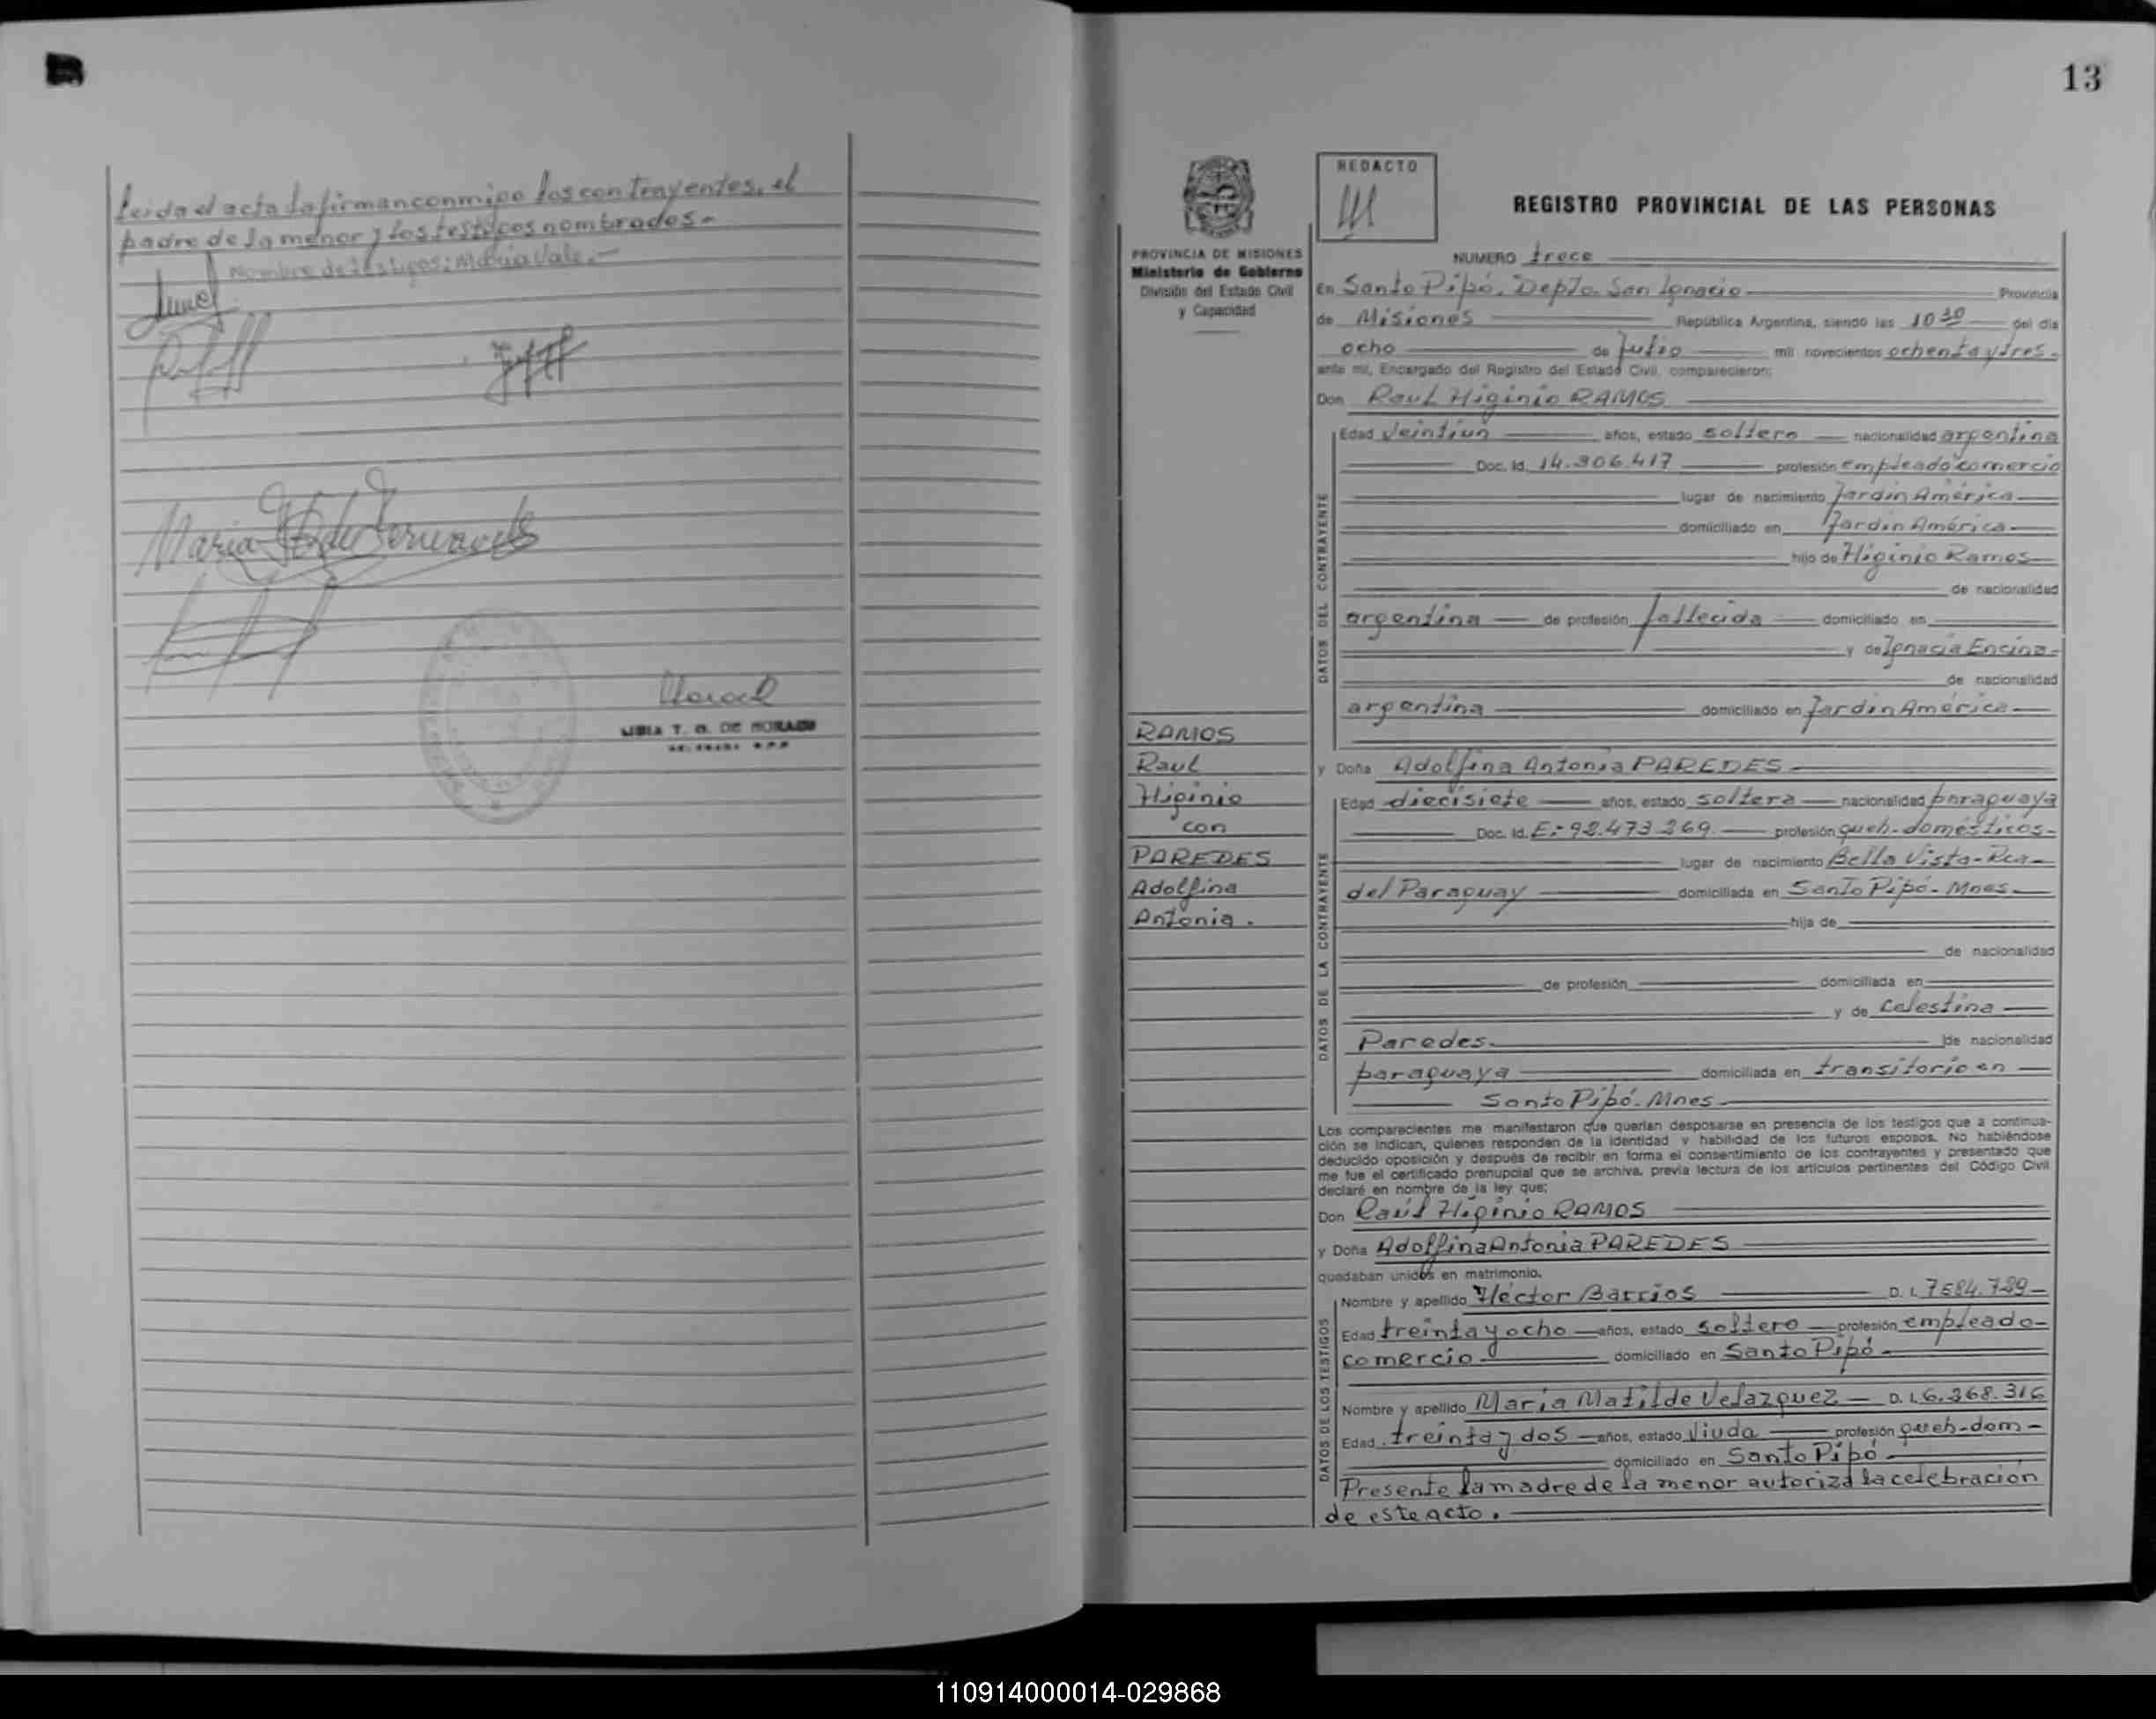 Leida el acta la firman conmigo los contrayentes, el
padre de la menor y los testigos nombrados.-
Nombre de testigos: María Vale.-
LIBIA T. G. DE MORACH
13
PROVINCIA DE MISIONES
Ministerio de Gobierno
División del Estado Civil
y Capacidad
REDACTO
REGISTRO PROVINCIAL DE LAS PERSONAS
NUMERO trece
En Santo Pipó. Depto. San Ignacio Provincia
de Misiones República Argentina, siendo las 10 30 del día
ocho de Julio mil novecientos ochenta y tres.
ante mí, Encargado del Registro del Estado Civil, comparecieron:
Don Raul Higinio RAMOS
DATOS DEL CONTRAYENTE
Edad Veintiun años, estado soltero nacionalidad argentina
Doc. Id. 14.306.417 profesión empleado comercio
lugar de nacimiento Jardín América
domiciliado en Jardín América
hijo de Higinio Ramos
de nacionalidad
argentina de profesión fallecida domiciliado en
y de Ignacia Encina
de nacionalidad
argentina domiciliado en Jardín América
RAMOS
Raul
Higinio
con
PAREDES
Adolfina
Antonia.
y Doña Adolfina Antonia PAREDES
DATOS DE LA CONTRAYENTE
Edad diecisiete años, estado soltera nacionalidad paraguaya
Doc. Id. E:-92.473.269 profesión queh-domésticos-
lugar de nacimiento Bella Vista-Rca-
del Paraguay domiciliada en Santo Pipó-Mnes
hija de
de nacionalidad
de profesión domiciliada en
y de Celestina
Paredes. de nacionalidad
paraguaya domiciliada en transitorio en
Santo Pipó-Mnes
Los comparecientes me manifestaron que querían desposarse en presencia de los testigos que a continua-
ción se indican, quienes responden de la identidad y habilidad de los futuros esposos. No habiéndose
deducido oposición y después de recibir en forma el consentimiento de los contrayentes y presentado que
me fue el certificado prenupcial que se archiva, previa lectura de los artículos pertinentes del Código Civil
declaré en nombre de la ley que:
Don Raúl Higinio RAMOS
y Doña Adolfina Antonia PAREDES
quedaban unidos en matrimonio.
DATOS DE LOS TESTIGOS
Nombre y apellido Héctor Barrios D. I. 7584.729
Edad treinta y ocho años, estado soltero profesión empleado-
comercio domiciliado en Santo Pipó-
Nombre y apellido María Matilde Velazquez D. I. 6.368.316
Edad treinta y dos años, estado Viuda profesión queh-dom-
domiciliado en Santo Pipó
Presente la madre de la menor autoriza la celebración
de este acto.
110914000014-029868